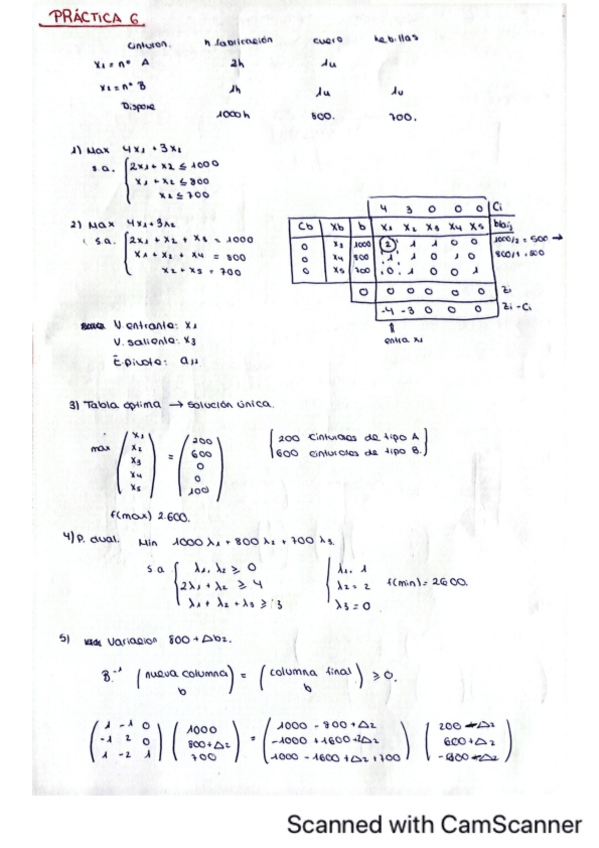 PRÁCTICA 6
cinturon. h fabricación cuero hebillas
x₁ = nº A 2h 1u
x₂ = nº B 1h 1u 1u
Dispone 1000h 800. 700.
1) Max 4x₁ + 3x₂
s.a. { 2x₁ + x₂ ≤ 1000
x₁ + x₂ ≤ 800
x₂ ≤ 700
2) Max 4x₁ + 3x₂
s.a. { 2x₁ + x₂ + x₃ = 1000
x₁ + x₂ + x₄ = 800
x₂ + x₅ = 700
4 3 0 0 0 Ci
Cb Xb b x₁ x₂ x₃ x₄ x₅
0 x₃ 1000 2 1 1 0 0 1000/2 = 500 →
0 x₄ 800 1 1 0 1 0 800/1 = 800
0 x₅ 700 0 1 0 0 1
0 0 0 0 0 0 Zi
-4 -3 0 0 0 Zi - Ci
↑
entra x₁
V. entrante: x₁
V. saliente: x₃
E. pivote: a₁₁
3) Tabla óptima → solución única.
max (x₁ x₂ x₃ x₄ x₅) = (200 600 0 0 100)
{ 200 cinturones de tipo A
600 cinturones de tipo B. }
f(max) 2.600.
4) P. dual. Min 1000 λ₁ + 800 λ₂ + 700 λ₃.
s a { λ₁, λ₂ ≥ 0
2λ₁ + λ₂ ≥ 4
λ₁ + λ₂ + λ₃ ≥ 3
{ λ₁. 1
λ₂ = 2
λ₃ = 0
f(min) = 2600.
5) Variacion 800 + Δb₂.
B.⁻¹ (nueva columna b) = (columna final b) ≥ 0.
( 1 -1 0 ) ( 1000 ) = ( 1000 - 800 + Δ₂ ) ( 200 - Δ₂ )
( -1 2 0 ) ( 800 + Δ₂ ) ( -1000 + 1600 + 2Δ₂ ) ( 600 + Δ₂ )
( 1 -2 1 ) ( 700 ) ( 1000 - 1600 + Δ₂ + 700 )
Scanned with CamScanner